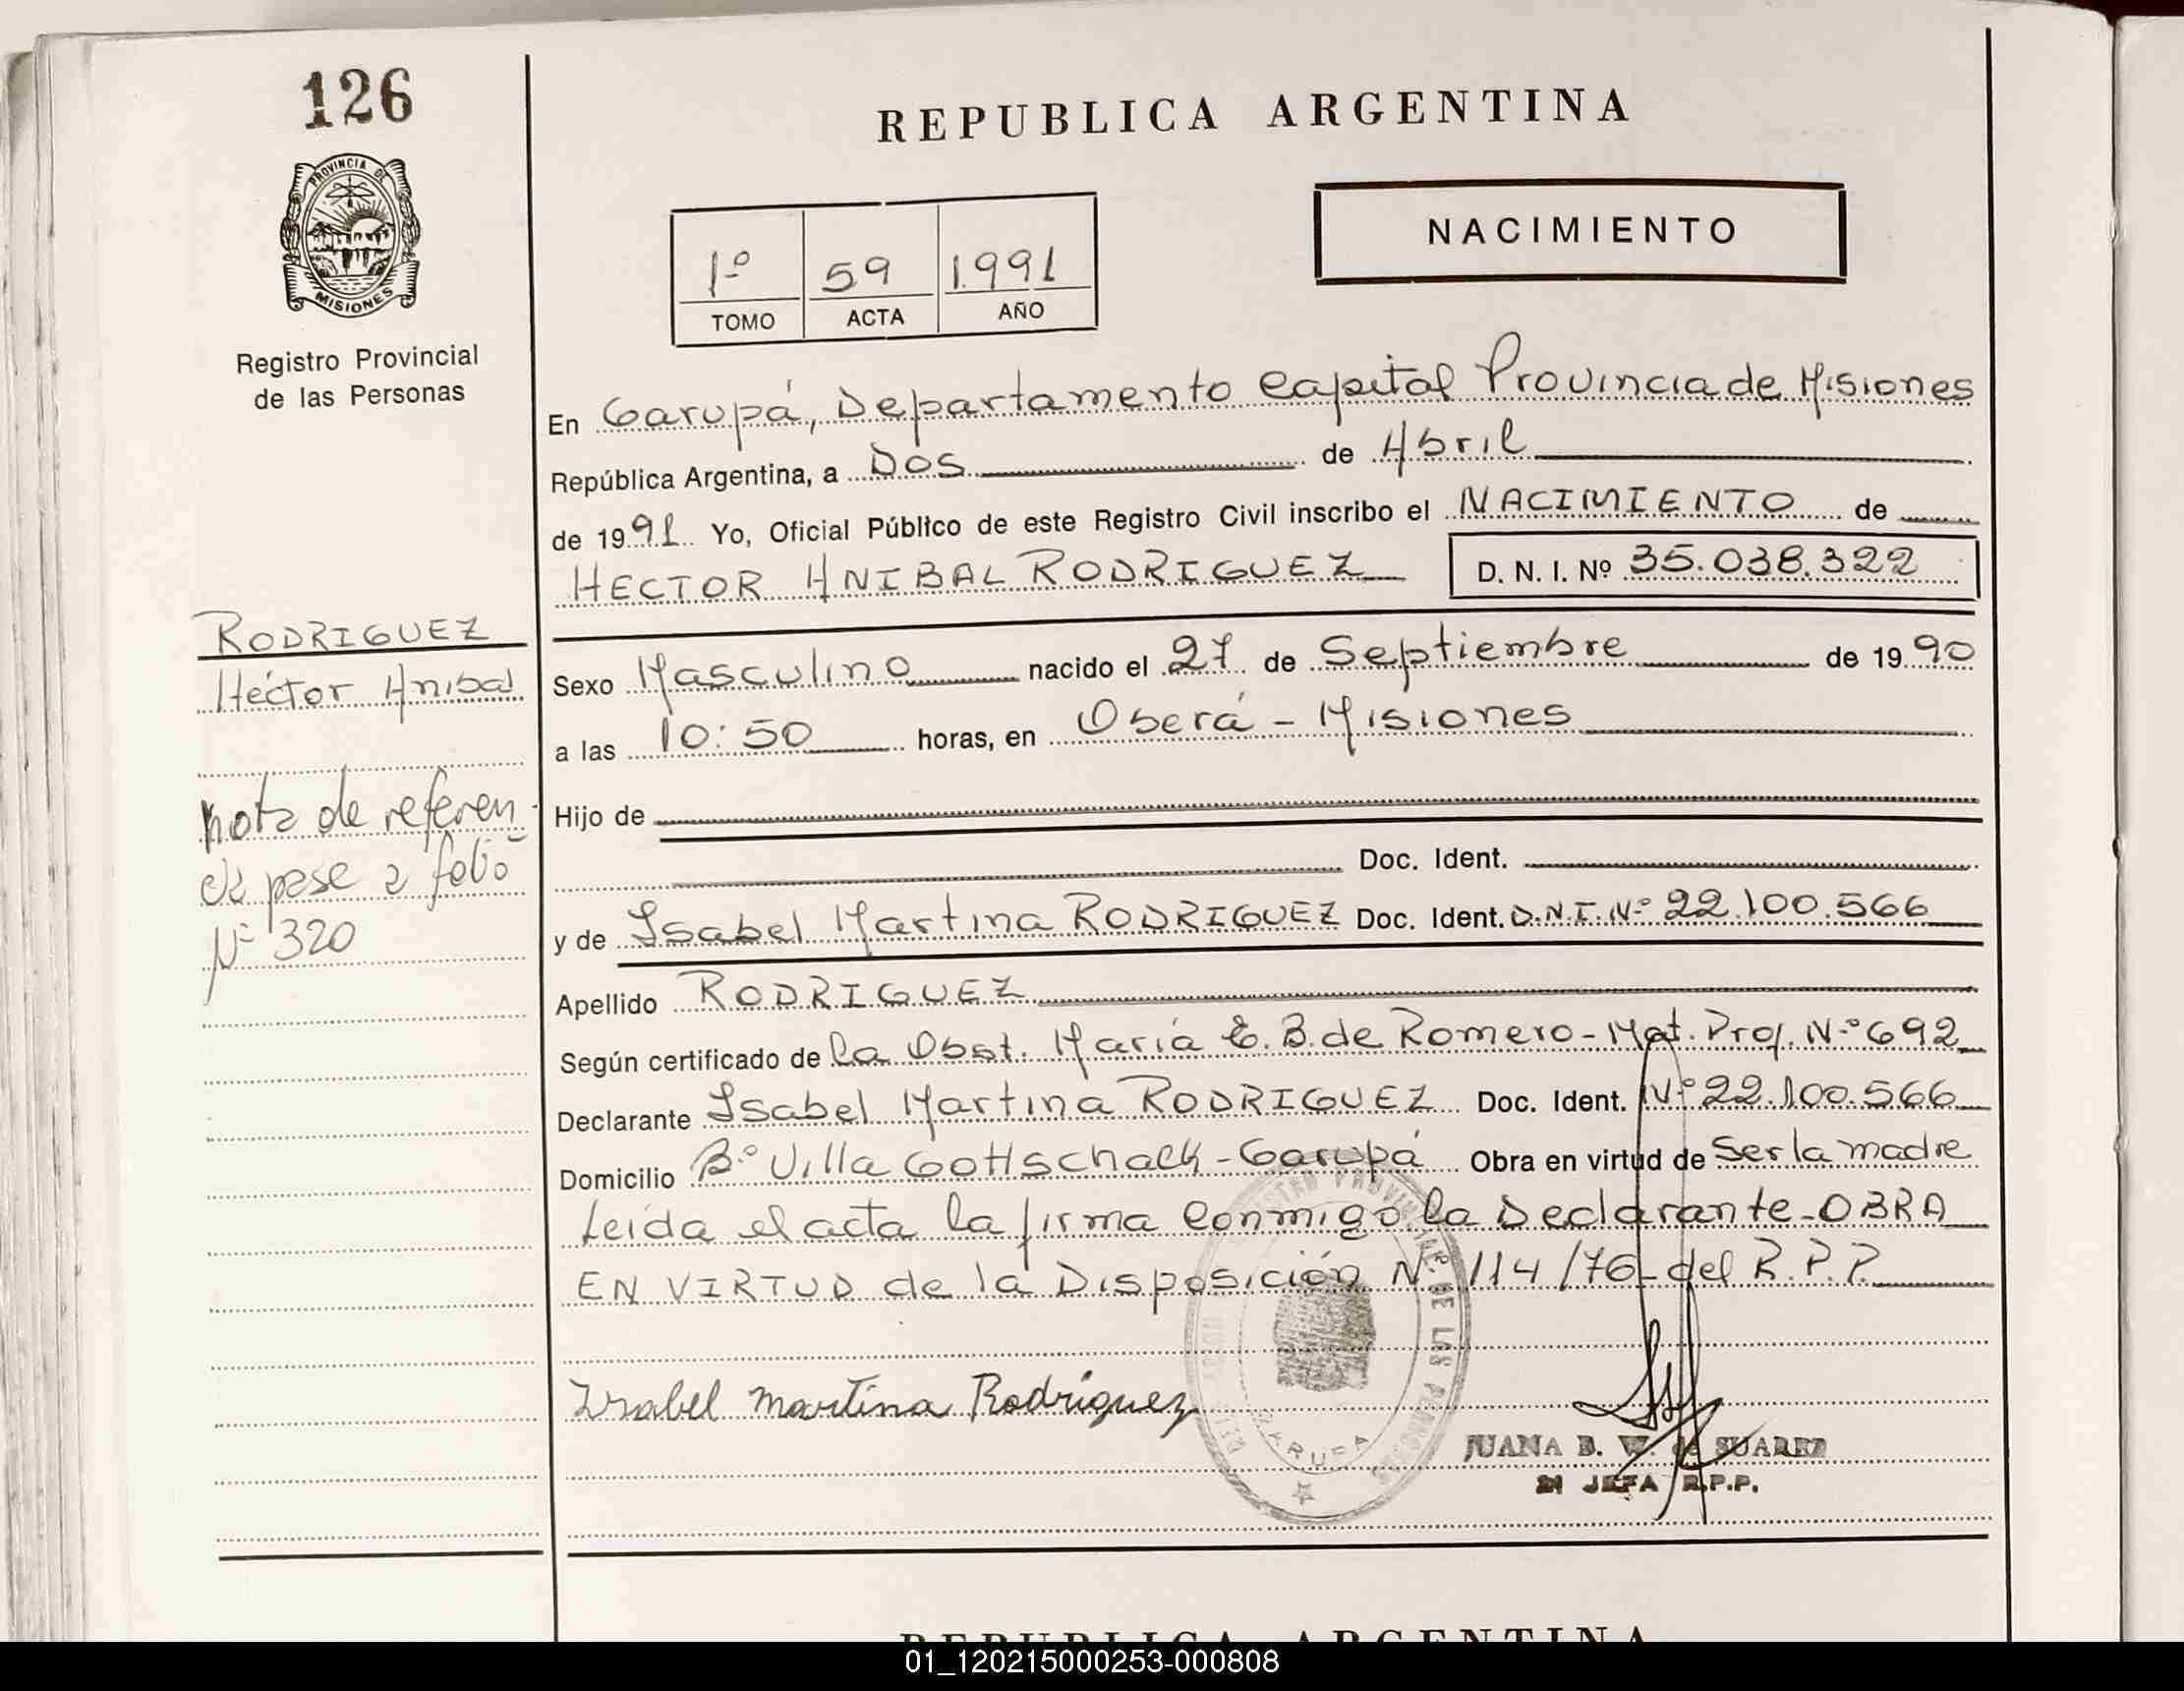 126
PROVINCIA DE
MISIONES
Registro Provincial
de las Personas
REPUBLICA ARGENTINA
NACIMIENTO
1º 59 1991
TOMO ACTA AÑO
En Garupá, Departamento Capital Provincia de Misiones
República Argentina, a Dos de Abril
de 1991 Yo, Oficial Público de este Registro Civil inscribo el NACIMIENTO de
HECTOR ANIBAL RODRIGUEZ D. N. I. Nº 35.038.322
RODRIGUEZ
Héctor Anibal
nota de referen
cia pase a folio
Nº 320
Sexo Masculino nacido el 27 de Septiembre de 1990
a las 10:50 horas, en Oberá - Misiones
Hijo de
Doc. Ident.
y de Isabel Martina RODRIGUEZ Doc. Ident. D.N.I. Nº 22.100.566
Apellido RODRIGUEZ
Según certificado de la Obst. María E. B. de Romero - Mat. Prof. Nº 692
Declarante Isabel Martina RODRIGUEZ Doc. Ident. Nº 22.100.566
Domicilio Bº Villa Gottschalk - Garupá Obra en virtud de ser la madre
Leída el acta la firma conmigo la Declarante - OBRA
EN VIRTUD de la Disposición Nº 114/76 - del R.P.P.
Isabel Martina Rodriguez
DE LAS PERSONAS
GARUPA
JUANA B. W. de SUAREZ
JEFA R.P.P.
REPUBLICA ARGENTINA
01_120215000253-000808